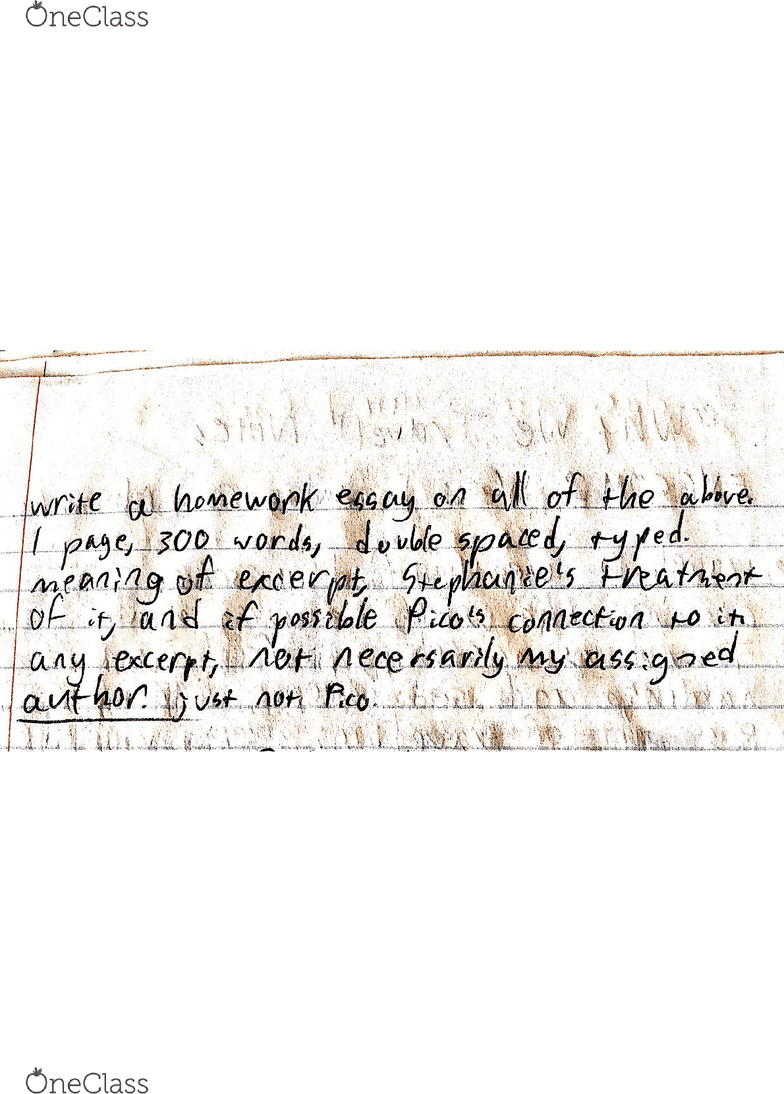 OneClass
write a homework essay on all of the above.
1 page, 300 words, double spaced, typed.
meaning of excerpt, Stephanie's treatment
of it, and if possible Pico's connection to it,
any excerpt, not necessarily my assigned
author. just not Pico.
OneClass